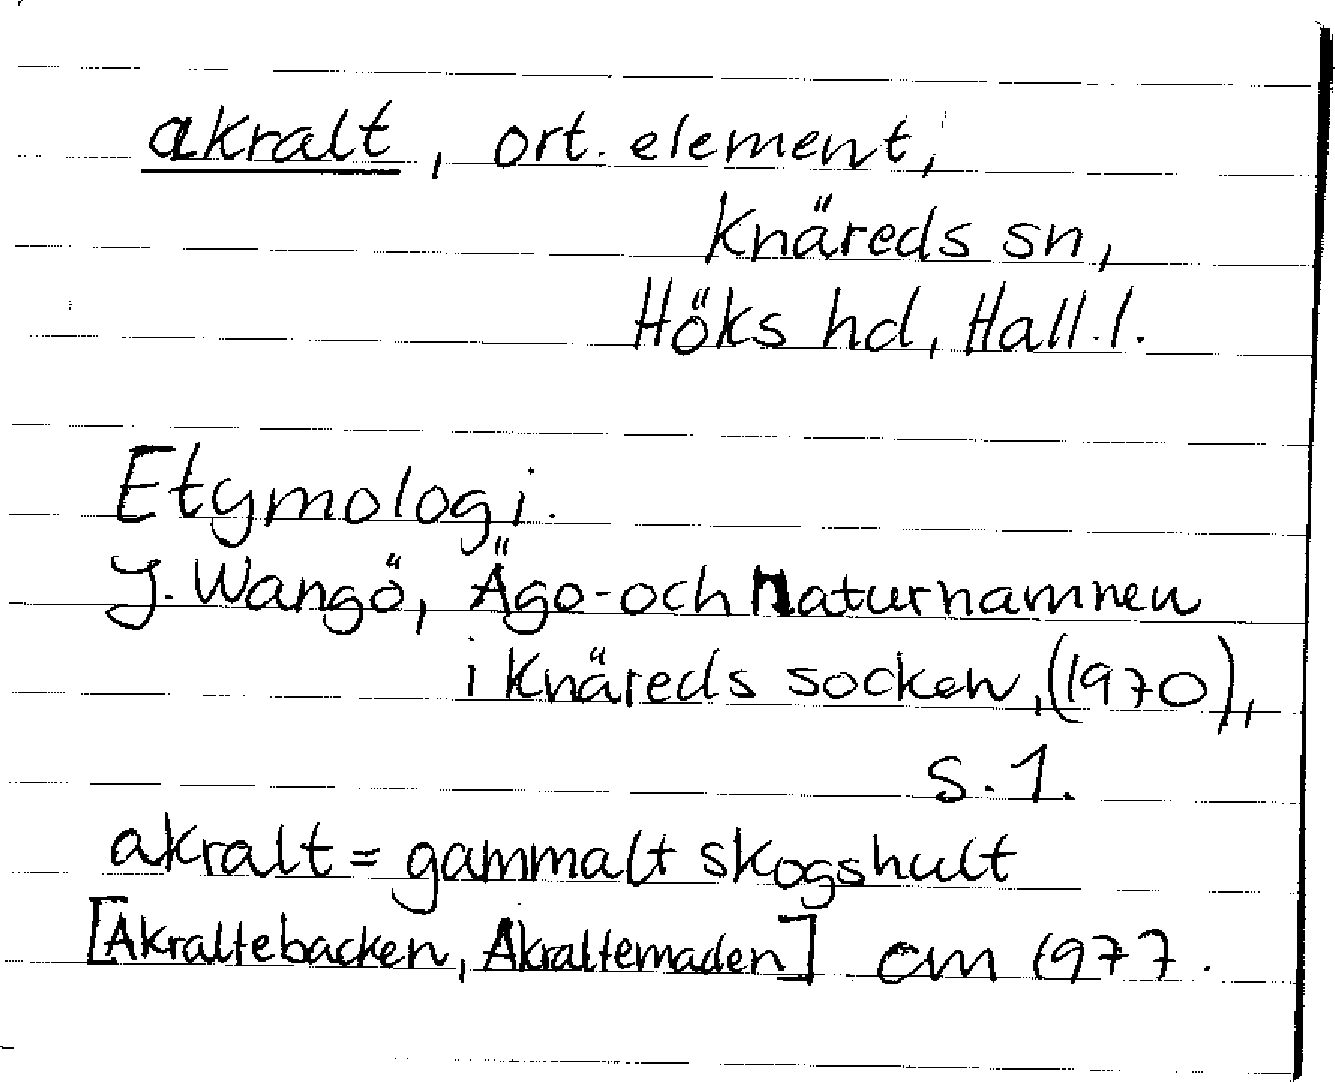 akralt, ort. element,
Knäreds sn,
Höks hd, Hall.l.
Etymologi.
J. Wangö, Ägo- och Naturnamnen
i Knäreds socken, (1970),
s. 1.
akralt = gammalt skogshult
[Akraltebacken, Akraltemaden] cm 1977.